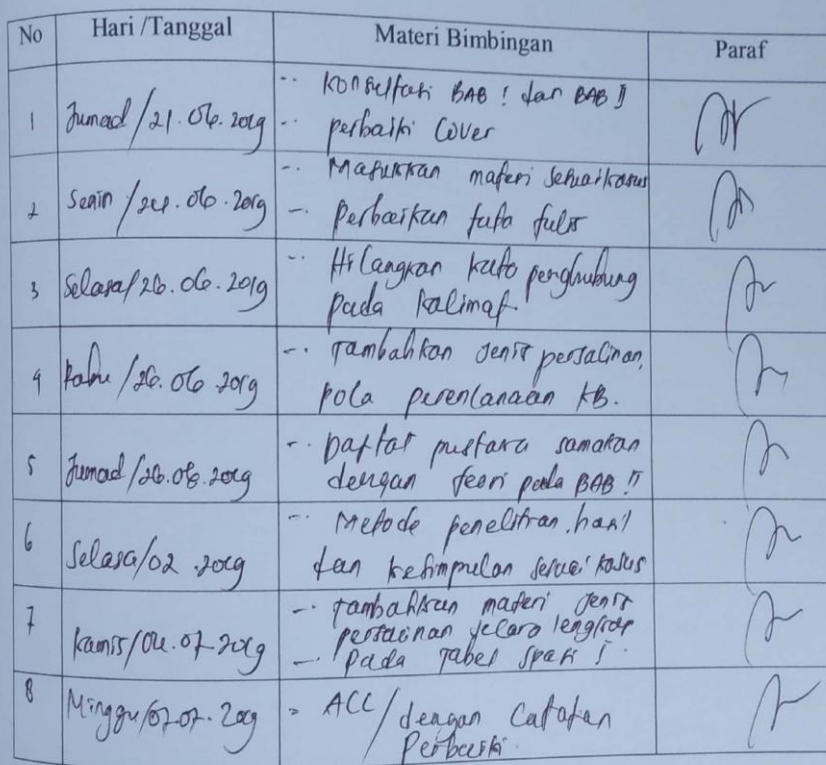 No Hari /Tanggal Materi Bimbingan Paraf
1 Jumad/21.06.2019 -. Konsultasi BAB I dan BAB II
-. perbaiki Cover
2 Senin /24.06.2019 -. Masukkan materi sesuai kasus
-. Perbaikan tata tulis
3 Selasa/26.06.2019 -. Hilangkan kata penghubung
pada kalimat.
4 Rabu /26.06.2019 -. Tambahkan Jenis persalinan,
pola perencanaan KB.
5 Jumad/26.06.2019 -. Daftar pustaka samakan
dengan teori pada BAB II
6 Selasa/02 .2019 -. Metode penelitian, hasil
dan kesimpulan sesuai kasus
7 Kamis/04.07-2019 -. tambahkan materi Jenis
persalinan secara lengkap
-. Pada Tabel
8 Minggu/07-07.2019 = ACC/dengan Catatan
Perbaiki.